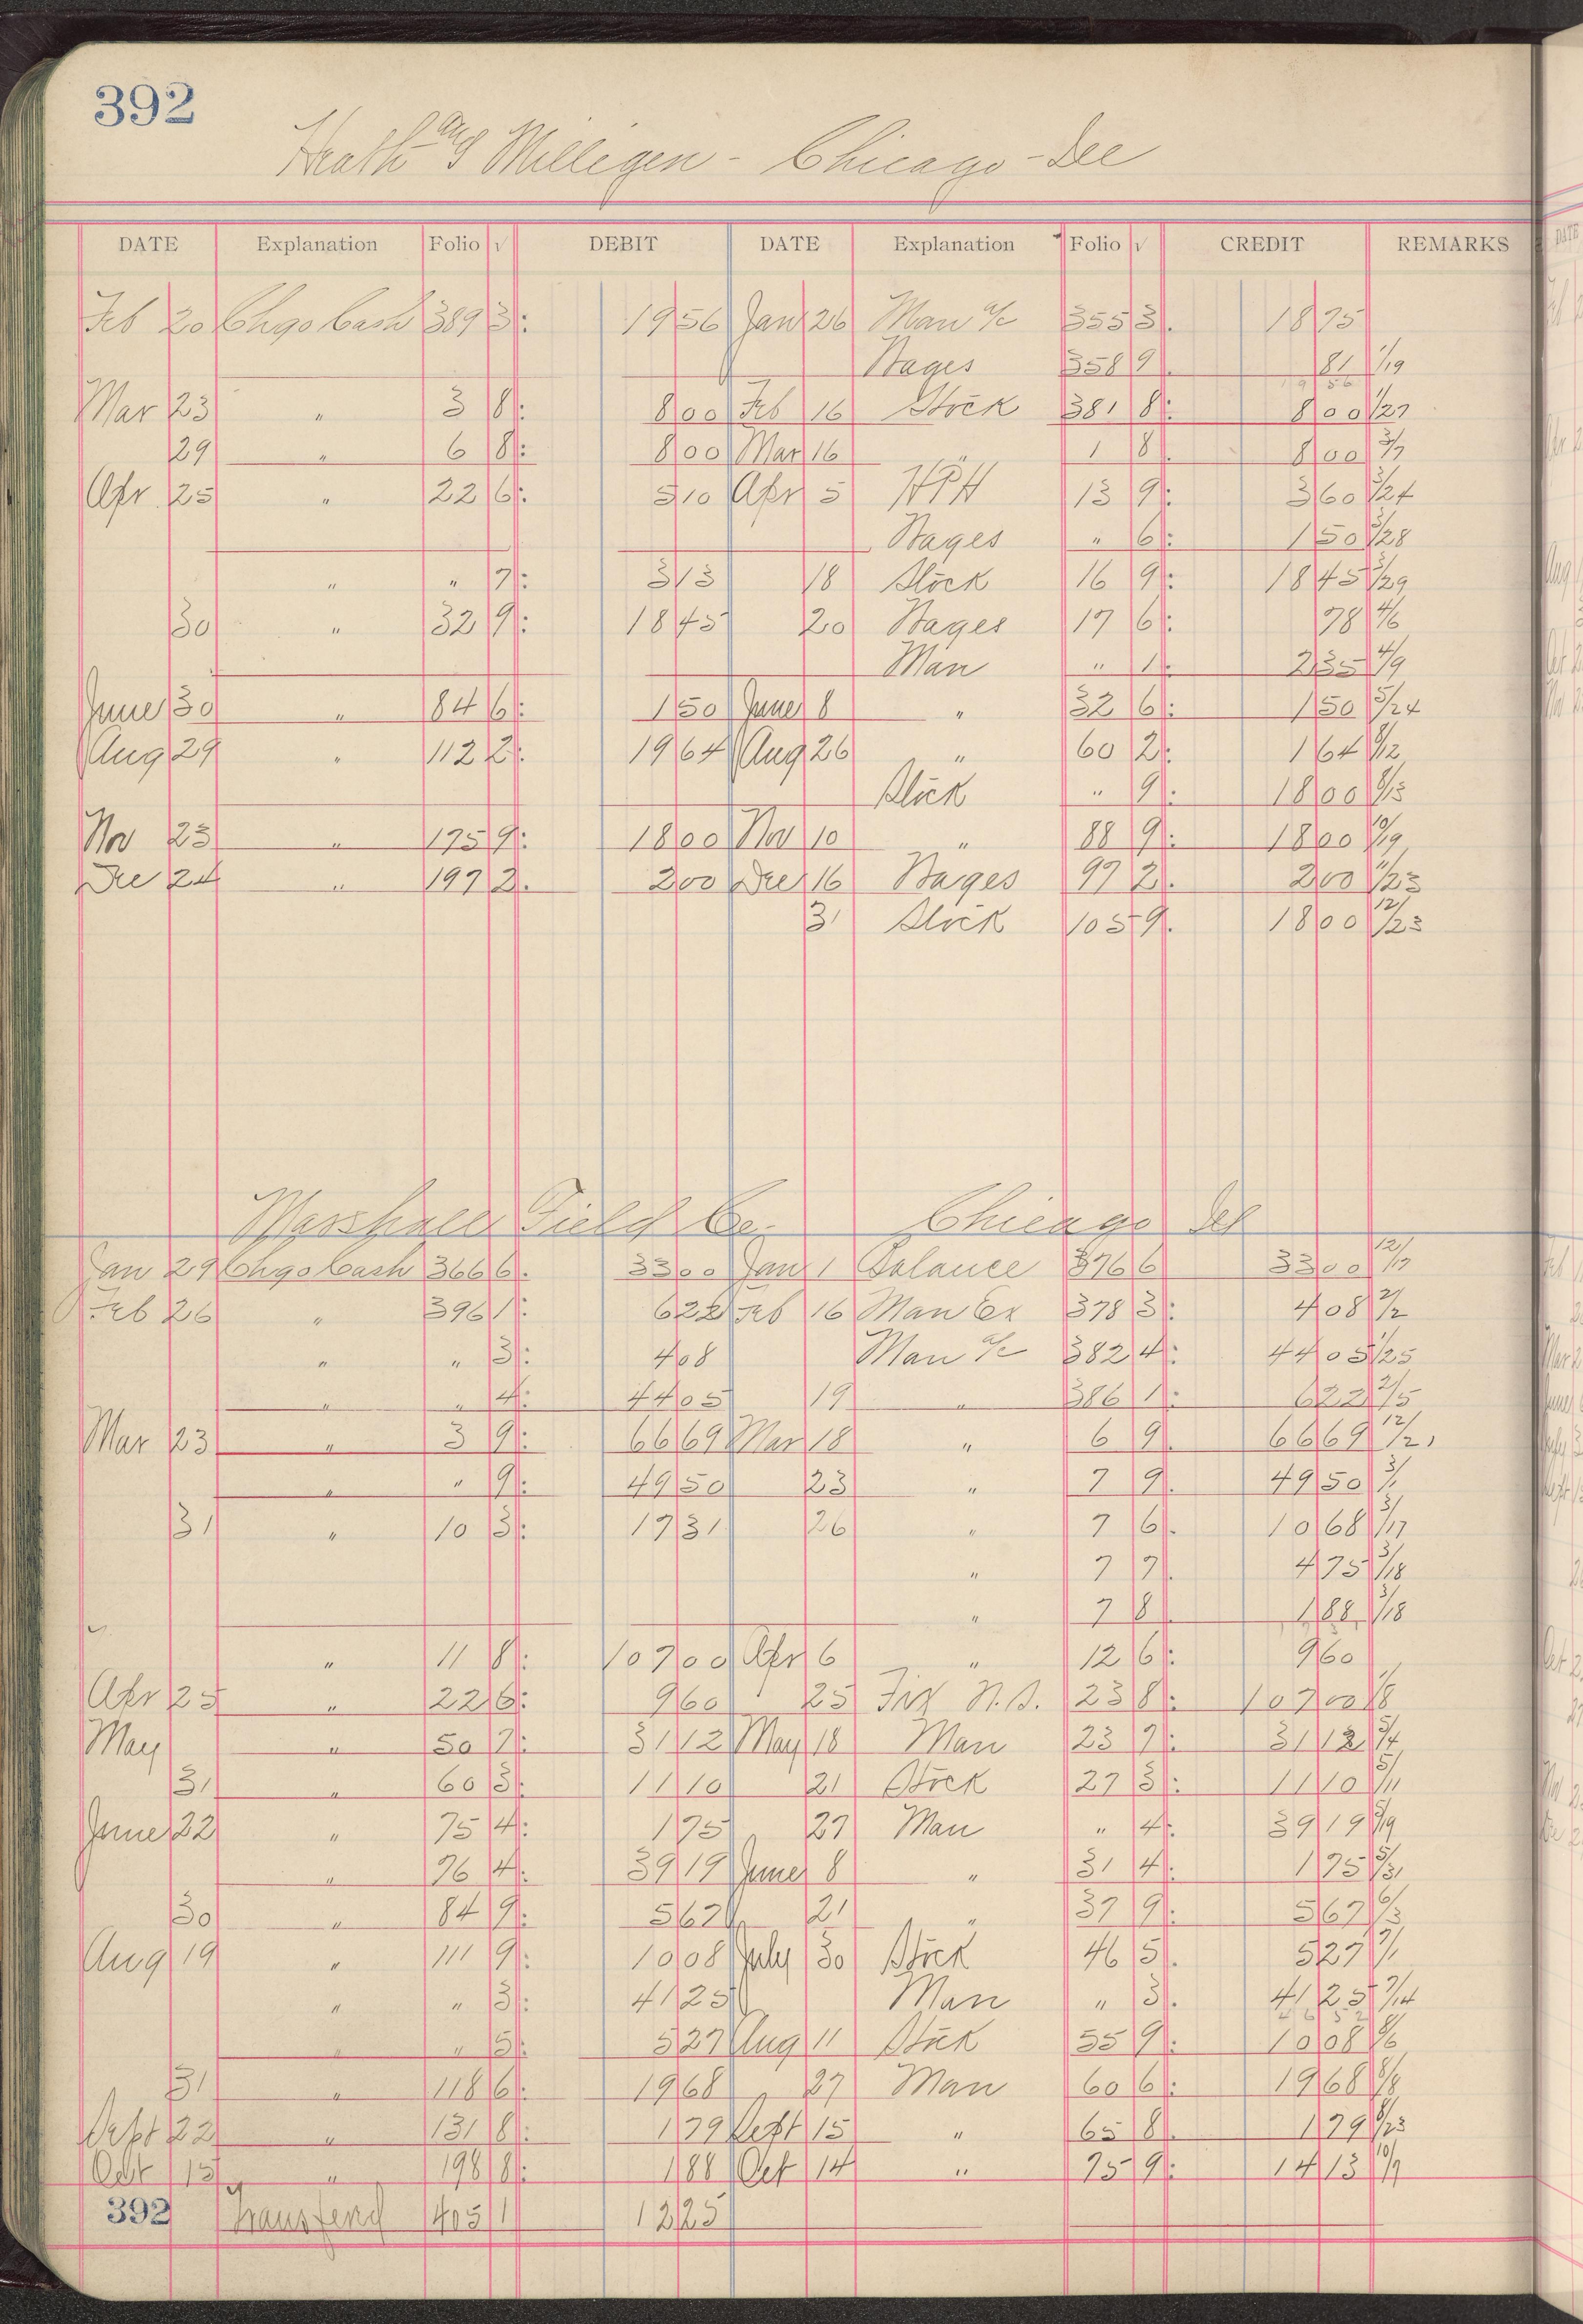 392
Heath and Milligen - Chicago - Ill
DATE Explanation Folio √ DEBIT DATE Explanation Folio √ CREDIT REMARKS
Feb 20 Chgo Cash 389 3: 19 56 Jan 26 Man a/c 355 3. 18 75
Wages 358 9 81 1/19
19 56
Mar 23 " 3 8: 8 00 Feb 16 Stock 381 8: 8 00 1/27
29 " 6 8: 8 00 Mar 16 " 1 8. 8 00 3/7
Apr 25 " 22 6: 5 10 Apr 5 HPH 13 9: 3 60 3/24
Wages " 6: 1 50 3/28
" " 7: 3 13 18 Stock 16 9: 18 45 3/29
30 " 32 9: 18 45 20 Wages 17 6: 78 4/6
Man " 1. 2 35 4/9
June 30 " 84 6: 1 50 June 8 " 32 6: 1 50 5/24
Aug 29 " 112 2: 19 64 Aug 26 " 60 2: 1 64 8/12
Stock " 9: 18 00 8/13
Nov 23 " 175 9: 18 00 Nov 10 " 88 9: 18 00 10/19
Dec 24 " 197 2. 2 00 Dec 16 Wages 97 2. 2 00 11/23
31 Stock 105 9. 18 00 12/23
Marshall Field Co. Chicago Ill
Jan 29 Chgo Cash 366 6. 33 00 Jan 1 Balance 376 6 33 00 12/17
Feb 26 " 396 1: 6 22 Feb 16 Man Ex 378 3: 4 08 2/2
" " 3: 4 08 Man a/c 382 4: 44 05 1/25
" " 4: 44 05 19 " 386 1: 6 22 2/5
Mar 23 " 3 9: 66 69 Mar 18 " 6 9. 66 69 12/21
" " 9: 49 50 23 " 7 9. 49 50 3/1
31 " 10 3: 17 31 26 " 7 6. 10 68 3/17
" 7 7. 4 75 3/18
" 7 8. 1 88 3/18
" 11 8: 107 00 Apr 6 " 12 6: 9 60
Apr 25 " 22 6: 9 60 25 Fix N.S. 23 8: 107 00 1/8
May " 50 7: 31 12 May 18 Man 23 7: 31 12 5/4
31 " 60 3: 11 10 21 Stock 27 3: 11 10 5/11
June 22 " 75 4: 1 75 27 Man " 4: 39 19 5/19
" 76 4: 39 19 June 8 " 31 4: 1 75 5/31
30 " 84 9: 5 67 21 " 37 9: 5 67 6/3
Aug 19 " 111 9: 10 08 July 30 Stock 46 5. 5 27 7/1
" " 3: 41 25 Man " 3. 41 25 7/14
" " 5: 5 27 Aug 11 Stock 55 9: 10 08 8/6
31 " 118 6: 19 68 27 Man 60 6: 19 68 8/8
Sept 22 " 131 8: 1 79 Sept 15 " 65 8. 1 79 8/23
Oct 15 " 198 8: 1 88 Oct 14 " 75 9: 14 13 10/7
392 Transferd 405 1 12 25